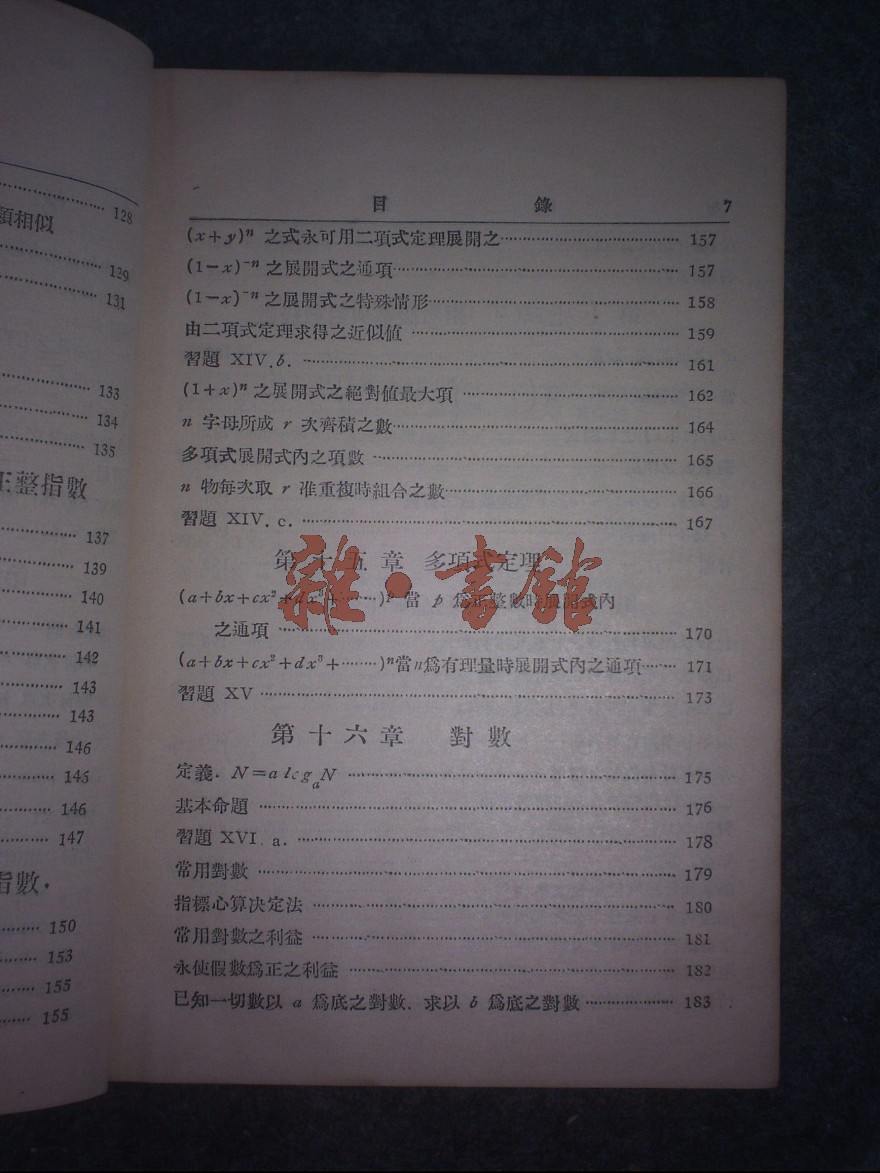 128
類相似
129
131
133
134
135
正整指數
137
139
140
141
142
143
143
146
145
146
147
指數.
150
153
155
155
目 錄 7
(x+y)ⁿ 之式永可用二項式定理展開之 157
(1−x)⁻ⁿ 之展開式之通項 157
(1−x)⁻ⁿ 之展開式之特殊情形 158
由二項式定理求得之近似值 159
習題 XIV.b. 161
(1+x)ⁿ 之展開式之絕對值最大項 162
n 字母所成 r 次齊積之數 164
多項式展開式內之項數 165
n 物每次取 r 准重複時組合之數 166
習題 XIV. c. 167
第十五章 多項式定理
(a+bx+cx²+dx³+……)ᵖ 當 p 爲正整數時展開式內
之通項 170
(a+bx+cx²+dx³+……)ⁿ當n爲有理量時展開式內之通項 171
習題 XV 173
第十六章 對數
定義. N=a log_aN 175
基本命題 176
習題 XVI. a. 178
常用對數 179
指標心算决定法 180
常用對數之利益 181
永使假數爲正之利益 182
已知一切數以 a 爲底之對數. 求以 b 爲底之對數 183
雜·書館